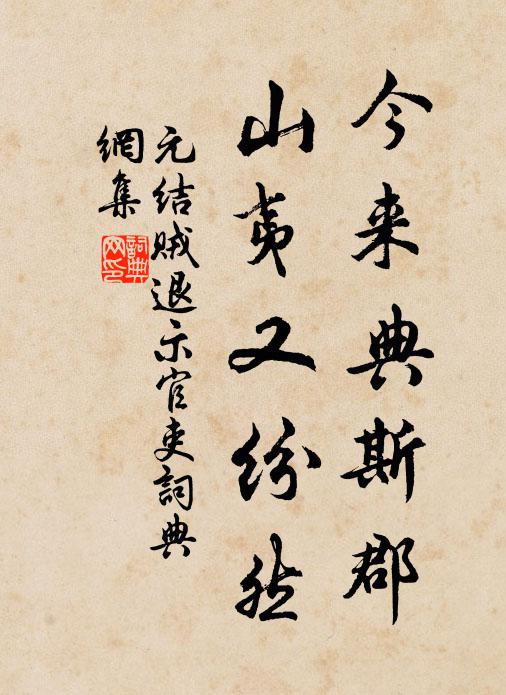 今来典斯郡
山夷又纷然
元结贼退示官吏詞典
網集
詞典
网印